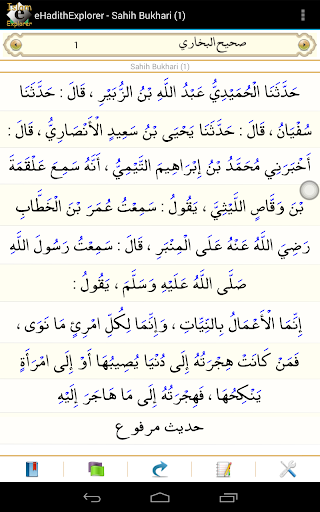 Islam
Explorer
eHadithExplorer - Sahih Bukhari (1)
1 صحيح البخاري
Sahih Bukhari (1)
حَدَّثَنَا الْحُمَيْدِيُّ عَبْدُ اللَّهِ بْنُ الزُّبَيْرِ ، قَالَ : حَدَّثَنَا
سُفْيَانُ ، قَالَ : حَدَّثَنَا يَحْيَى بْنُ سَعِيدٍ الْأَنْصَارِيُّ ، قَالَ :
أَخْبَرَنِي مُحَمَّدُ بْنُ إِبْرَاهِيمَ التَّيْمِيُّ ، أَنَّهُ سَمِعَ عَلْقَمَةَ
بْنَ وَقَّاصٍ اللَّيْثِيَّ ، يَقُولُ : سَمِعْتُ عُمَرَ بْنَ الْخَطَّابِ
رَضِيَ اللَّهُ عَنْهُ عَلَى الْمِنْبَرِ ، قَالَ : سَمِعْتُ رَسُولَ اللَّهِ
صَلَّى اللَّهُ عَلَيْهِ وَسَلَّمَ ، يَقُولُ :
إِنَّمَا الْأَعْمَالُ بِالنِّيَّاتِ ، وَإِنَّمَا لِكُلِّ امْرِئٍ مَا نَوَى ،
فَمَنْ كَانَتْ هِجْرَتُهُ إِلَى دُنْيَا يُصِيبُهَا أَوْ إِلَى امْرَأَةٍ
يَنْكِحُهَا ، فَهِجْرَتُهُ إِلَى مَا هَاجَرَ إِلَيْهِ
حديث مرفوع